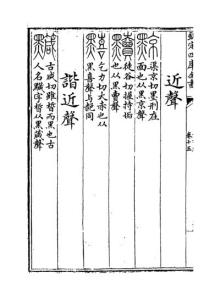 欽定四庫全書
近聲
渠京切墨刑在
面也从黑京聲
徒谷切握持垢
也从黑賣聲
力切大赤也从
黑喜聲與同
諧近聲
古咸切雖晳而黑也古
人名字晳从黑箴聲